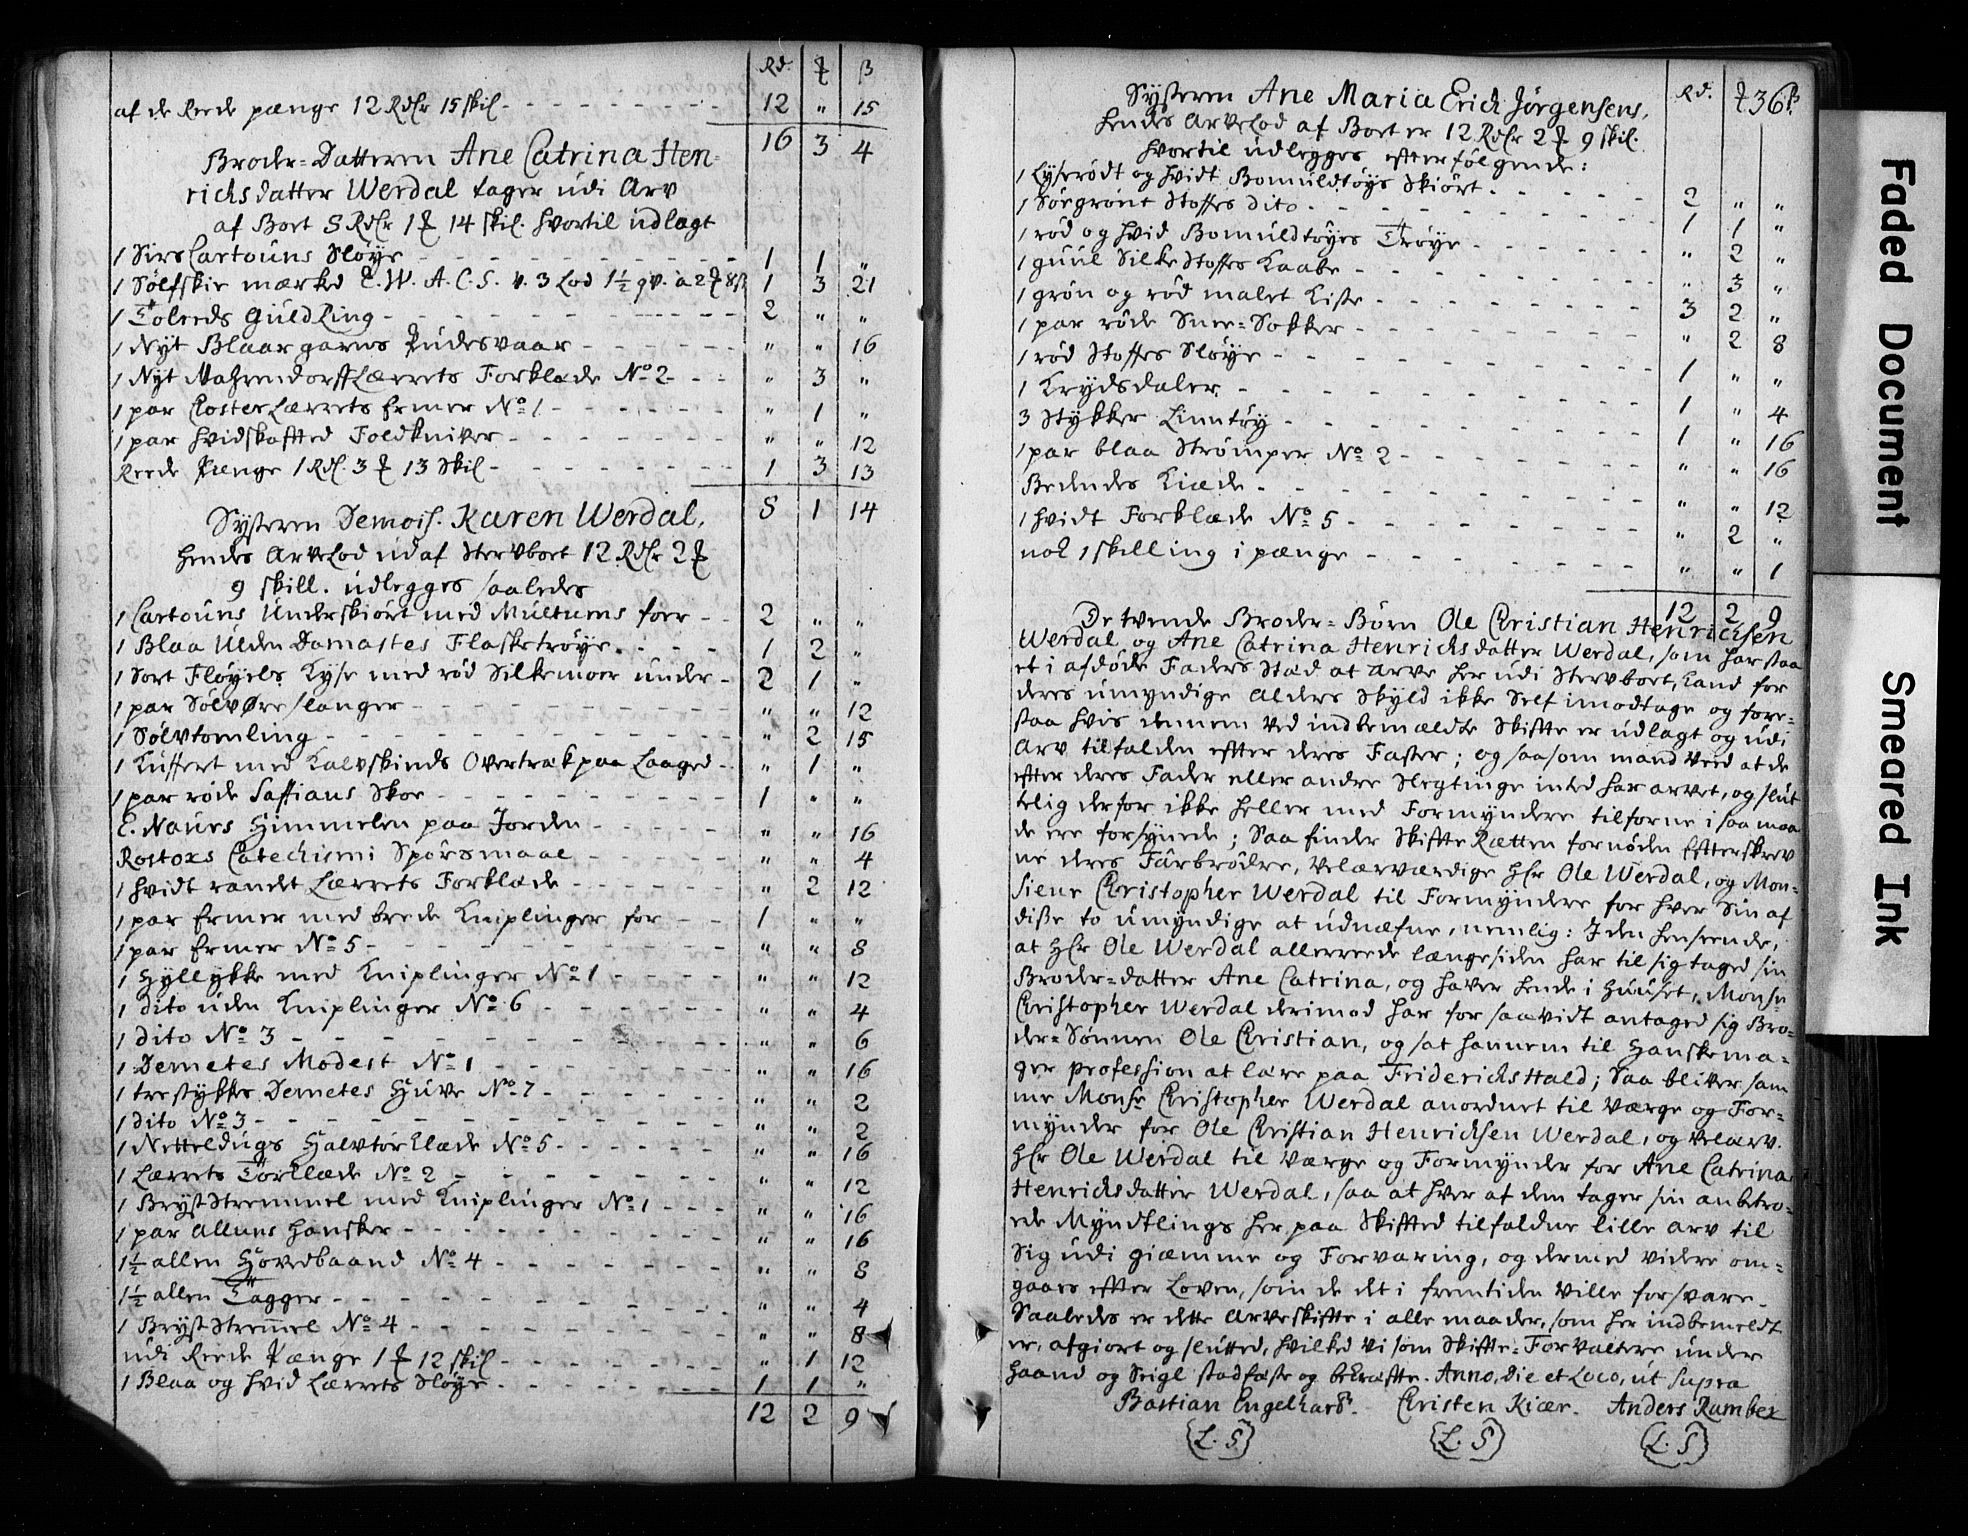 Rd. ℔ β
af de Reede penge 12 Rdlr 15 skil - 12 " 15
16 3 4
Broder-Datteren Ane Catrina Hen-
richsdatter Werdal tager udi Arv
af Boet 8 Rdlr 1 ℔ 14 skil. hvortil udlagt
1 Sirs Cartouns Sløye - 1 1 "
1 Sølfskie mærked E. W. A. C. S. v. 3 Lod 1½ qv. a 2 ℔ 8 β 1 3 21
1 Toleeds Guldring - 2 " "
1 Nyt Blaargarns Pudesvaar - " " 16
1 Nyt Mahrendorff Lærrets Forklæde No 2 - " 3 "
1 par Closter Lærrets Ermer No 1 - " 1 "
1 par hvidskafted Foldkniver - " " 12
Reede Penge 1 Rdl. 3 ℔ 13 Skil - 1 3 13
8 1 14
Systeren Demois. Karen Werdal,
hendes Arvelod udaf Stervboet 12 Rdlr 2 ℔
9 skill. udlegges saaledes
1 Cartouns Underskiørt med Multums foer - 2 " "
1 Blaa Ulden Damastes Flasketrøye - 1 2 "
1 Sort Fløyels Kyse med rød Silkemoer under - 2 1 "
1 par Sølvøreslanger - " " 12
1 Sølvtomling - " 2 15
1 Kuffert med Kalvskinds Overtræk paa Laaged - " 1 "
1 par røde Saffians Skoe - 1 " "
C. Naurs Himmelen paa Jorden - " " 16
Rostoxs Catechismi Spørsmaal - " " 4
1 hvidt randet Lærrets Forklæde - " 2 12
1 par Ermer med brede Kniplinger for - 1 " "
1 par Ermer No 5 - " " 8
1 Hyllykke med Kniplinger No 1 - " " 12
1 dito uden Kniplinger No 6 - " " 4
1 dito No 3 - " " 6
1 Demetes Modest No 1 - " " 16
1 trestykke Demetes Huve No 7 - " " 2
1 dito No 3 - " " 2
1 Netteldugs Halvtørklæde No 5 - " " 16
1 Lærrets Tørklæde No 2 - " " 12
1 Bryststremmel med Kniplinger No 1 - " " 16
1 par Alluns Hansker - " " 16
1½ allen Hovedbaand No 4 - " " 8
1½ allen Tagger - " " 4
1 Bryststremmel No 4 - " " 8
udi Reede Penge 1 ℔ 12 skil - " 1 12
1 Blaa og hvid Lærrets Sløye - 1 1 "
12 2 9
Rd. ℔ 36. β
Systeren Ane Maria Erich Jørgensens,
hendes Arvelod af Boet er 12 Rdlr 2 ℔ 9 skil.
hvortil udlegges efterfølgende:
1 Lyserødt og hvidt Bomuldtøys Skiørt - 2 " "
1 Sørgrønt Stoffes dito - 1 1 "
1 rød og hvid Bomuldtøyes Trøye - " 2 "
1 guul Silke Stoffes Kaabe - " 3 "
1 grøn og rød malet Kiste - 3 2 "
1 par røde Snee-Sokker - " 2 8
1 rød Stoffes Sløye - 1 " "
1 Krydsdaler - 1 " 4
3 Stykker Linntøy - 1 " 16
1 par blaa Strømper No 2 - " " 16
Bedendes Kiæde - " " 12
1 hvidt Forklæde No 5 - " 2 "
nok 1 skilling i penge - " " 1
12 2 9
De tvende Broder-Børn Ole Christian Henrichsen
Werdal og Ane Catrina Henrichsdatter Werdal, som har staa
et i afdøde Faders Stæd at arve her udi Stervboet, kand for
deres umyndige Alders Skyld ikke Self imodtage og fore-
staa hvis dennem ved indbemældte Skifte er udlagt og udi
Arv tilfalden efter deres Faster; og saasom mand Veed at de
efter deres Fader eller andre Slegtinge inted har arvet, og slut
telig derfor ikke heller med Formyndere tilforne i saa maa
de ere forsynede; Saa finder Skifte Retten fornøden Efterskrev
ne deres Farbrødre, Velærværdige Hr Ole Werdal, og Mon-
sieur Christopher Werdal til Formyndere for hver Sin af
disse to umyndige at udnæfne, nemlig: I den henseende,
at Hr Ole Werdal allereede længesiden har til sig taged sin
Broder-datter Ane Catrina, og haver hende i Huuset, Monsr
Christopher Werdal derimod har for saavidt antaged sig Bro-
der-Sønnen Ole Christian, og sat hannem til Handskema-
ger profession at lære paa Friderichshald; Saa bliver sam
me Monsr Christopher Werdal anordnet til Værge og For-
mynder for Ole Christian Henrichsen Werdal, og Velærv.
Hr Ole Werdal til Værge og Formynder for Ane Catrina
Henrichsdatter Werdal, saa at hver af dem tager sin anbetro-
ede Myndtlings her paa Skifted tilfaldne lille arv til
Sig udi giæmme og Forvaring, og dermed videre om-
gaaes efter Loven, som de det i fremtiden ville forsvare.
Saaledes er dette Arveskifte i alle maader, som her indbemeldt
er, afgiort og sluttet, hvilked vi som Skifte-Forvaltere under
haand og Seigl stadfæste og bekræfte. Anno, die et Loco, ut supra
Bastian Engelhard. Christen Kiær. Anders Rambex
(L. S) (L. S) (L. S)
Faded Document
Smeared Ink